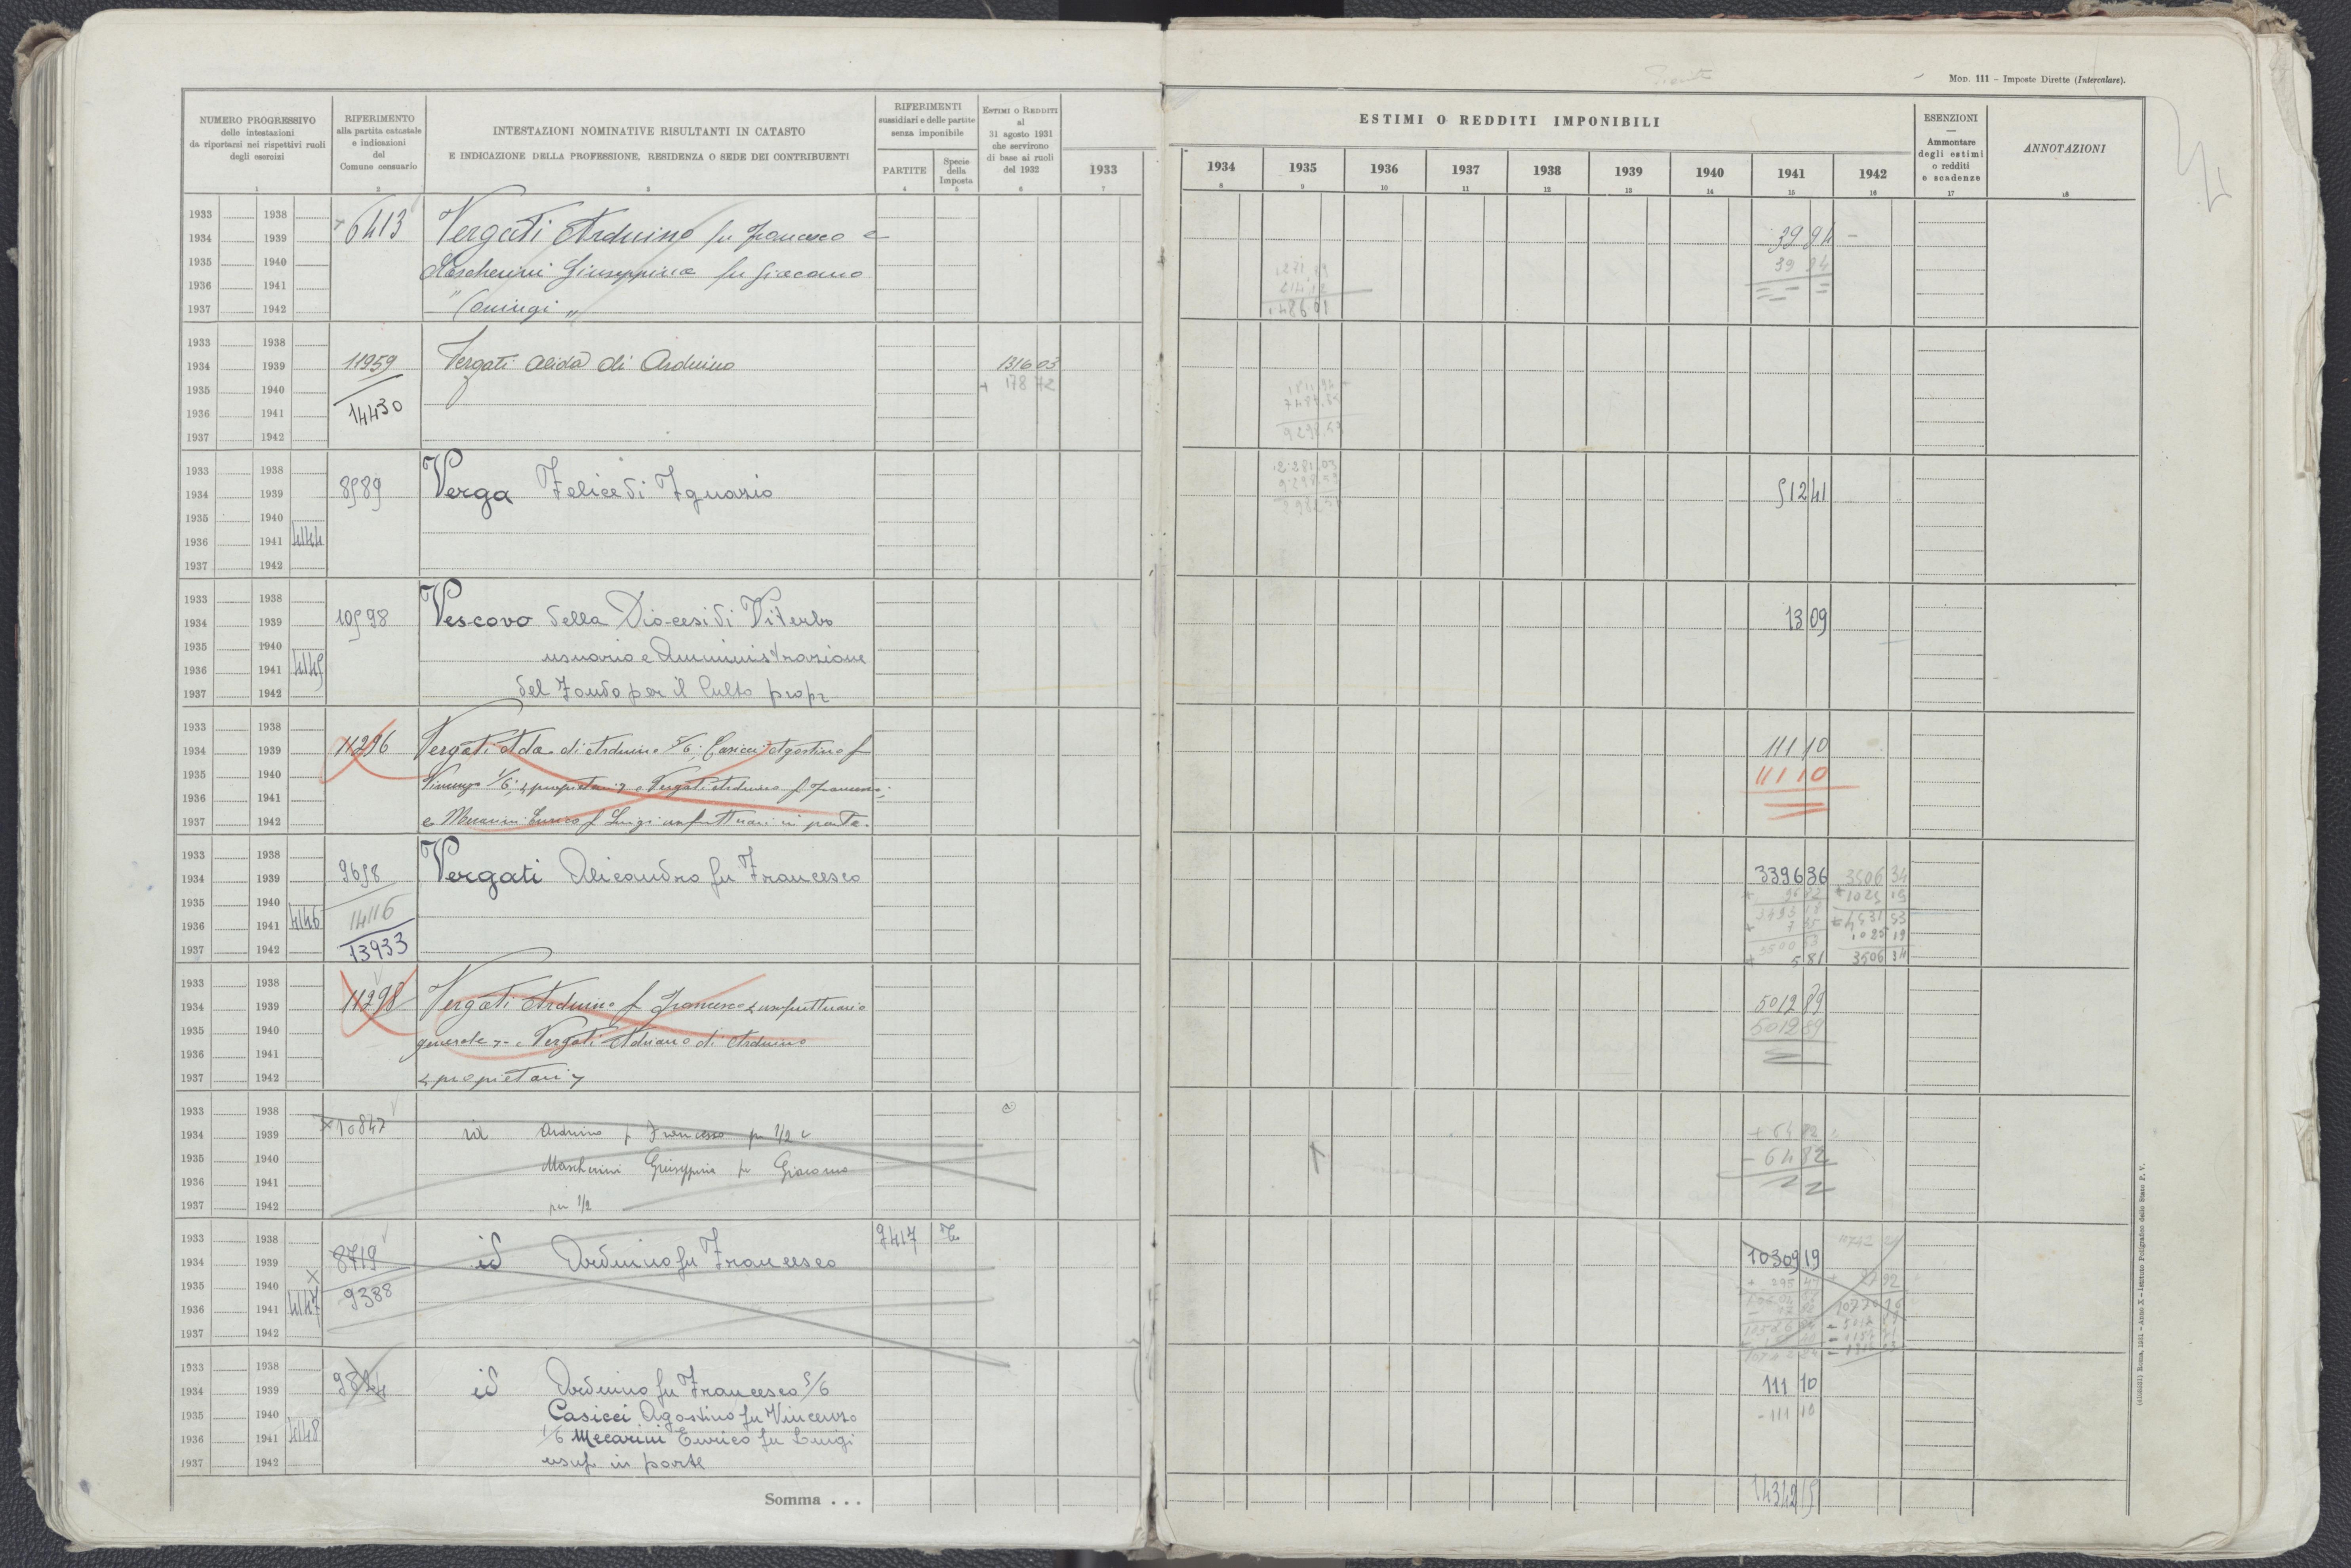 Mod. 111 - Imposte Dirette (Intercalare).
NUMERO PROGRESSIVO
delle intestazioni
da riportarsi nei rispettivi ruoli
degli esercizi
1
RIFERIMENTO
alla partita catastale
e indicazioni
del
Comune censuario
2
INTESTAZIONI NOMINATIVE RISULTANTI IN CATASTO
E INDICAZIONE DELLA PROFESSIONE, RESIDENZA O SEDE DEI CONTRIBUENTI
3
RIFERIMENTI
sussidiari e delle partite
senza imponibile
PARTITE
4
Specie
della
Imposta
5
ESTIMI O REDDITI
al
31 agosto 1931
che servirono
di base ai ruoli
del 1932
6
1933
7
ESTIMI O REDDITI IMPONIBILI
1934 1935 1936 1937 1938 1939 1940 1941 1942
8 9 10 11 12 13 14 15 16
ESENZIONI
Ammontare
degli estimi
o redditi
e scadenze
17
ANNOTAZIONI
18
1933 1938
1934 1939 6413 Vergati Arduino fu Francesco e 39 94
1935 1940 Mascherini Giuseppina fu Giacomo 39 94
1936 1941
1937 1942 " Coniugi " 1486 01
1933 1938
1934 1939 11959 Vergati Alida di Arduino 1316 03
1935 1940 + 178 72
1936 1941 14430
1937 1942
1933 1938
1934 1939 8589 Verga Felice di Ignazio 512 41
1935 1940
1936 1941 4144
1937 1942
1933 1938
1934 1939 10598 Vescovo della Diocesi di Viterbo 13 09
1935 1940 usuario e Amministrazione
1936 1941 4145
1937 1942 del Fondo per il Culto propr
1933 1938
1934 1939 11296 Vergati Ada di Arduino 5/6; Casicci Agostino f 111 10
1935 1940 Vincenzo 1/6; propietari e Vergati Arduino f Francesco; 111 10
1936 1941
1937 1942 e Mecarini Enrico f Luigi usufruttuari in parte.
1933 1938
1934 1939 9658 Vergati Alicandro fu Francesco 3396 36 3506 34
1935 1940 + 1025 19
1936 1941 4146 14116
1937 1942 13933 1025 19
+ 5 81 3506 34
1933 1938
1934 1939 11298 Vergati Arduino f Francesco usufruttuario 5012 89
1935 1940 generale e Vergati Adriano di Arduino 5012 89
1936 1941
1937 1942 propietari
1933 1938
1934 1939 10847 id Arduino fu Francesco per 1/2 e + 64 82
1935 1940 Mascherini Giuseppina fu Giacomo - 64 82
1936 1941
1937 1942 per 1/2
1933 1938 9417
1934 1939 8719 id Arduino fu Francesco 10309 19
1935 1940 9388
1936 1941 4147
1937 1942
1933 1938
1934 1939 id Arduino fu Francesco 5/6 111 10
1935 1940 Casicci Agostino fu Vincenzo - 111 10
1936 1941 4148 1/6 Mecarini Enrico fu Luigi
1937 1942 usuf. in parte
Somma . . . 14342 15
(4105031) Roma, 1931 - Anno X - Istituto Poligrafico dello Stato P. V.